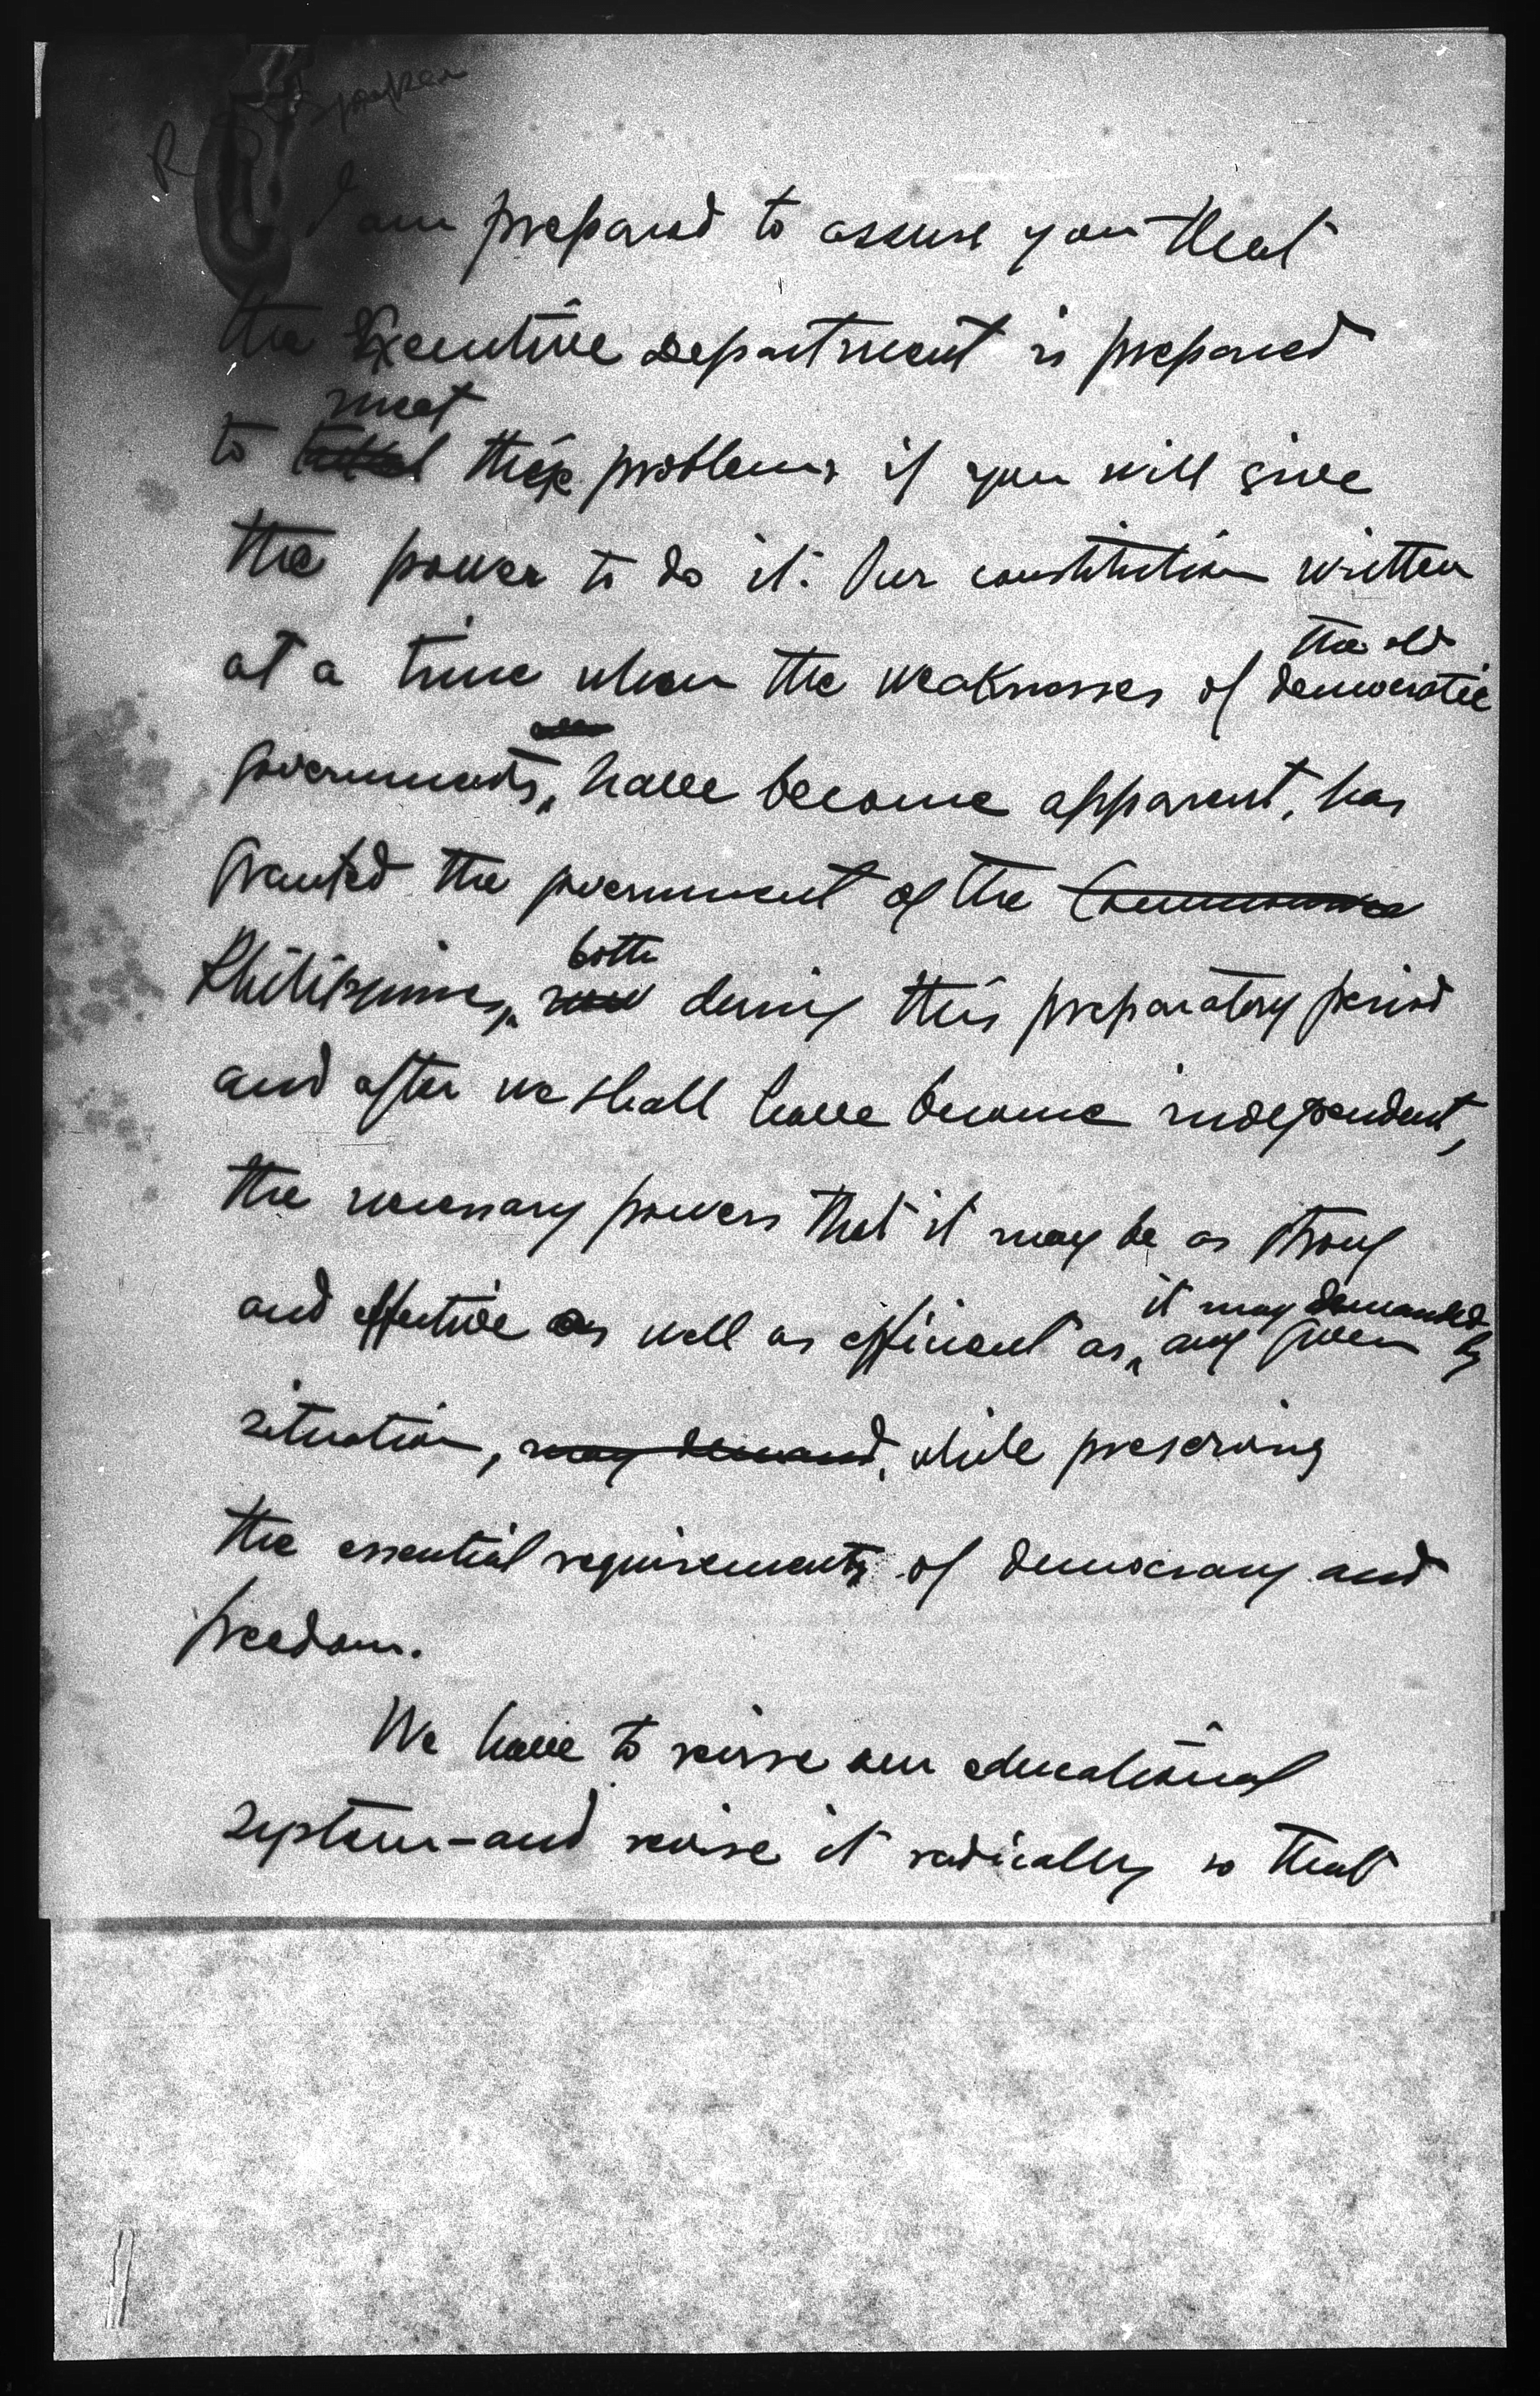 R
I am prepared to assure you that
the Executive Department is prepared
meet
to these problems if you will give
the power to do it. Our constitution written
the old
at a time when the weaknesses of democratic
governments, have become apparent, has
granted the government of the
both
Philippines, during this preparatory period
and after we shall have become independent,
the necessary powers that it may be as strong
it may demanded
and effective as well as efficient as any given by
situation, may demand, while preserving
the essential requirements of democracy and
freedom.
We have to revise our educational
system - and revise it radically so that